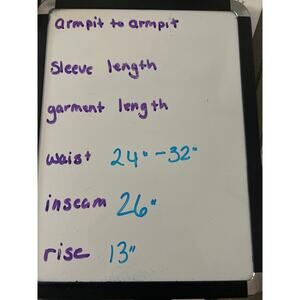 armpit to armpit
Sleeve length
garment length
waist 24"-32"
inseam 26"
rise 13"